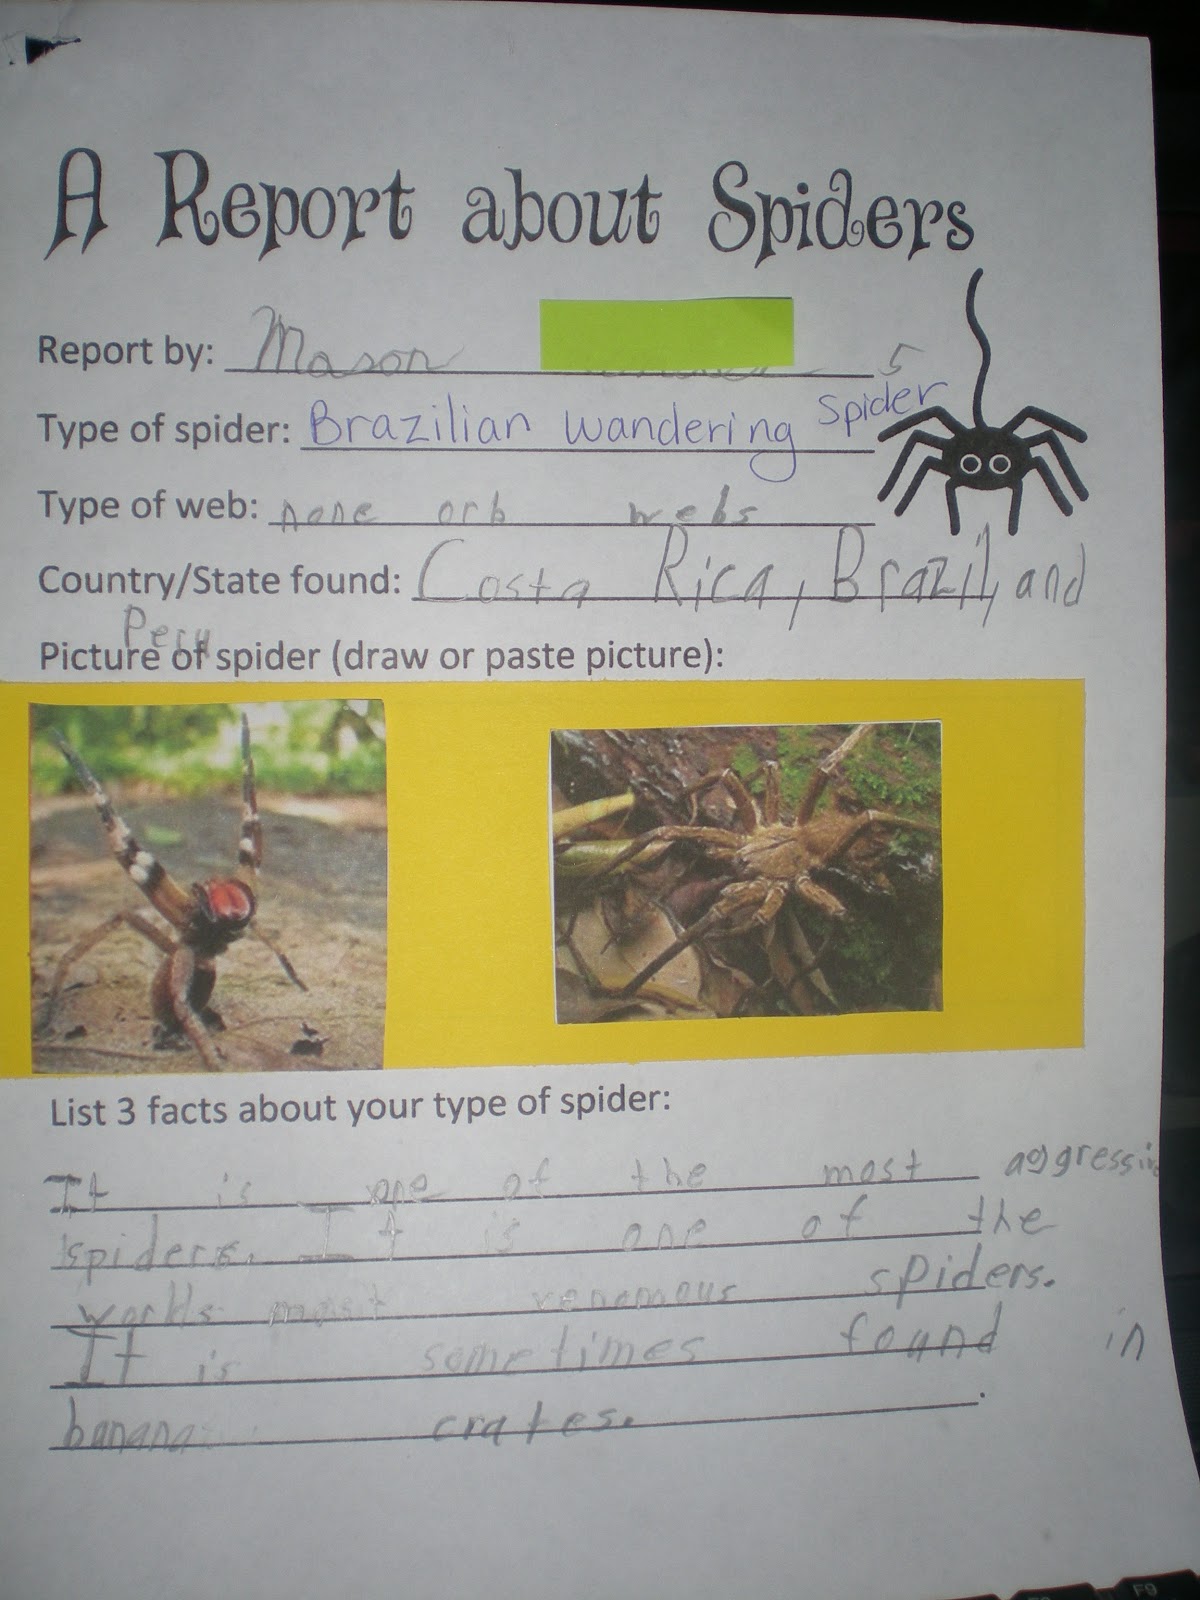 A Report about Spiders
Report by: Mason 5
Type of spider: Brazilian wandering Spider
Type of web: none orb webs
Country/State found: Costa Rica, Brazil, and
Peru
Picture of spider (draw or paste picture):
List 3 facts about your type of spider:
It is one of the most aggressive
spiders. It is one of the
worlds most venomous spiders.
It is sometimes found in
banana crates.
F9